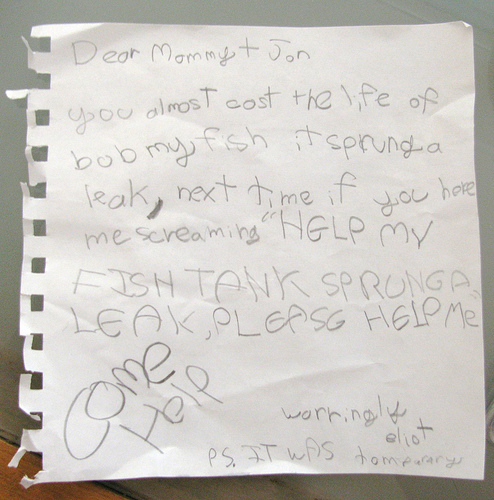 Dear Mommy + Jon
you almost cost the life of
bob my fish it sprung a
leak, next time if you here
me screaming "HELP MY
FISH TANK SPRUNG A
LEAK, PLEASE HELP ME"
Come
Help
worringly
eliot
PS. IT WAS tomparary